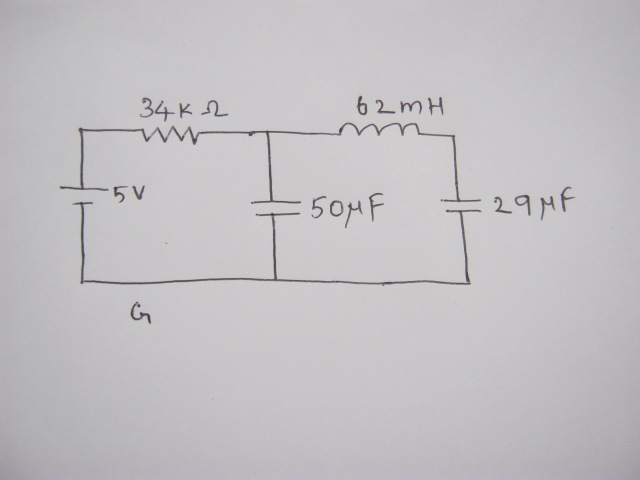 34K Ω
62mH
5V
50μF
29μF
G